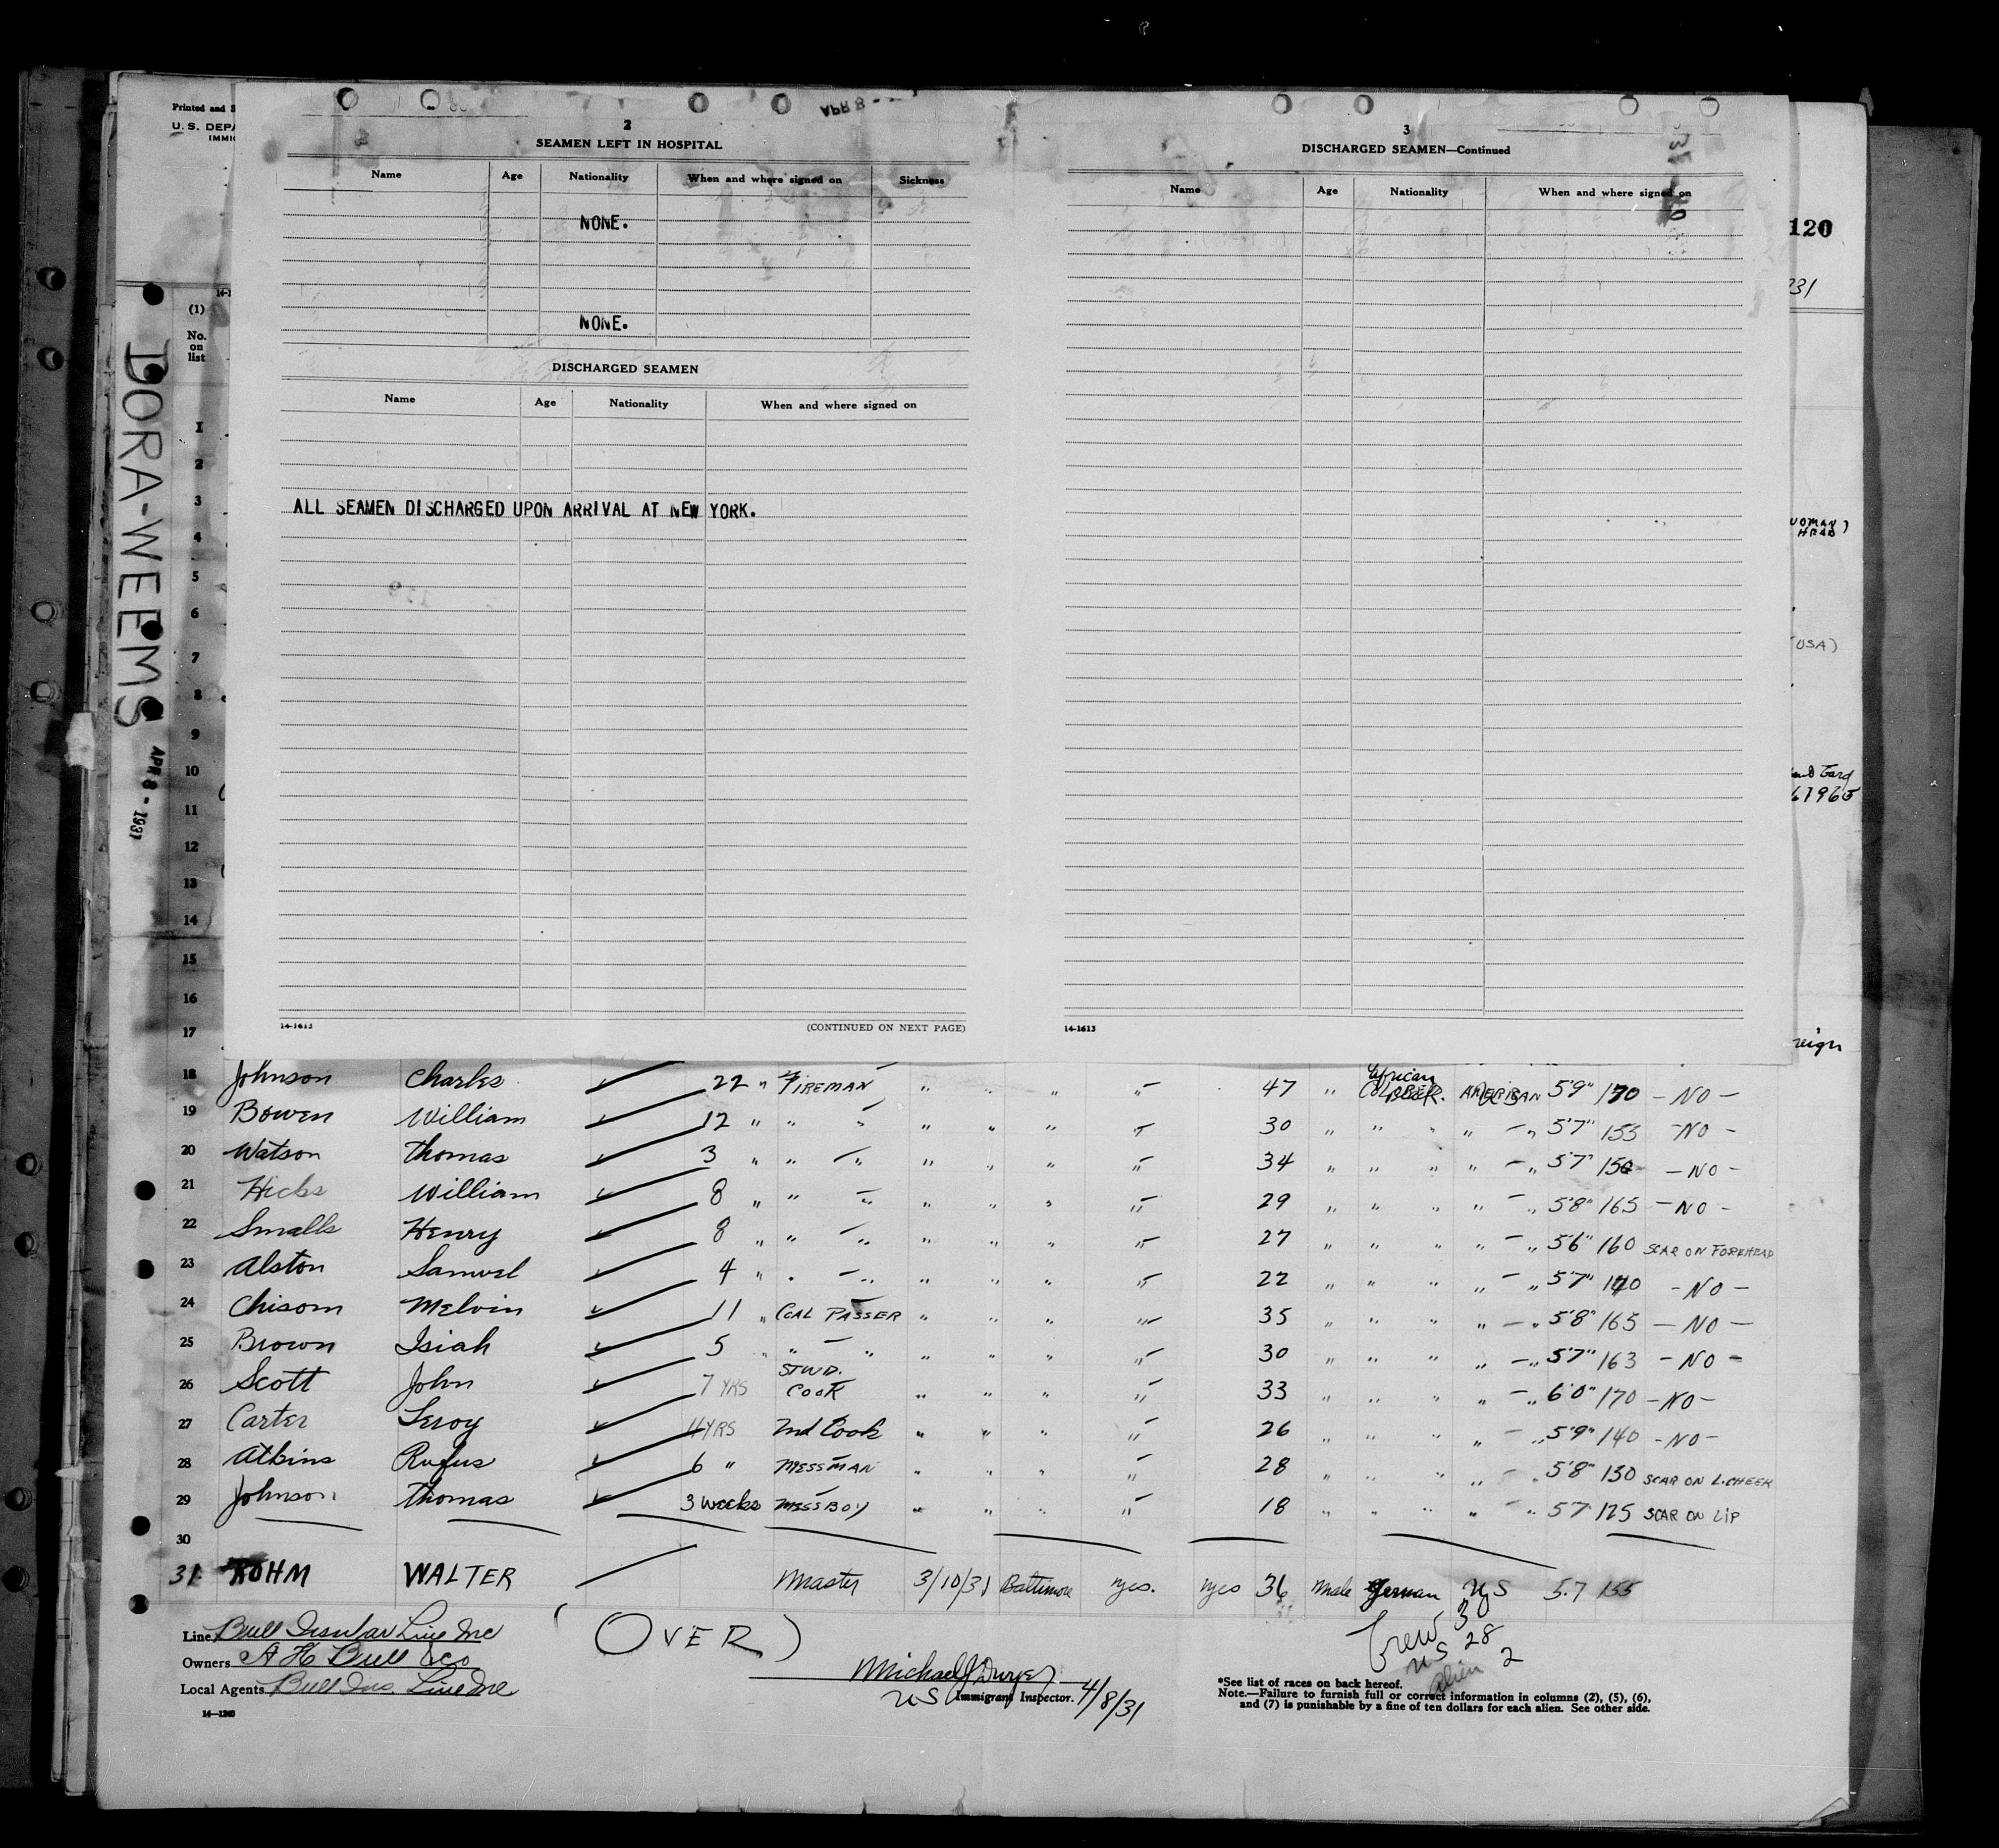 Printed and S
U. S. DEPA
IMMIG
2
SEAMEN LEFT IN HOSPITAL
Name Age Nationality When and where signed on Sickness
NONE.
NONE.
DISCHARGED SEAMEN
Name Age Nationality When and where signed on
ALL SEAMEN DISCHARGED UPON ARRIVAL AT NEW YORK.
14-1613 (CONTINUED ON NEXT PAGE)
APR 8 -
3
DISCHARGED SEAMEN—Continued
Name Age Nationality When and where signed on
14-1613
120
231
WOMAN)
HEAD
(USA)
61965
reign
DORA-WEEMS
APR 8 - 1931
(1)
No.
on
list
1
2
3
4
5
6
7
8
9
10
11
12
13
14
15
16
17
18 Johnson Charles 22 " FIREMAN " " " " 47 " African AMERICAN 5'9" 170 - NO -
19 Bowen William 12 " " " " " " " 30 " " " " " 5'7" 155 - NO -
20 Watson Thomas 3 " " " " " " " 34 " " " " " 5'7" 150 - NO -
21 Hicks William 8 " " " " " " " 29 " " " " " 5'8" 165 - NO -
22 Smalls Henry 8 " " " " " " " 27 " " " " " 5'6" 160 SCAR ON FOREHEAD
23 Alston Samuel 4 " " " " " " " 22 " " " " " 5'7" 140 - NO -
24 Chisom Melvin 11 " COAL PASSER " " " " 35 " " " " " 5'8" 165 - NO -
25 Brown Isiah 5 " " " " " " " 30 " " " " " 5'7" 163 - NO -
26 Scott John 7 YRS STWD. COOK " " " " 33 " " " " " 6'0" 170 - NO -
27 Carter Leroy 4 YRS 2nd Cook " " " " 26 " " " " " 5'9" 140 - NO -
28 Atkins Rufus 6 " MESSMAN " " " " 28 " " " " " 5'8" 150 SCAR ON L. CHEEK
29 Johnson Thomas 3 weeks MESSBOY " " " " 18 " " " " " 5'7 125 SCAR ON LIP
30
31 WALTER Master 3/10/31 Baltimore yes. yes 36 Male German US 5.7 155
Line Bull Insular Line Inc
Owners A H Bull & Co
Local Agents Bull Ins. Line Inc
14—1240
(OVER)
Michael J Dwyer
US Immigrant Inspector. 4/8/31
Crew 30
US 28
alien 2
*See list of races on back hereof.
Note.—Failure to furnish full or correct information in columns (2), (5), (6),
and (7) is punishable by a fine of ten dollars for each alien. See other side.